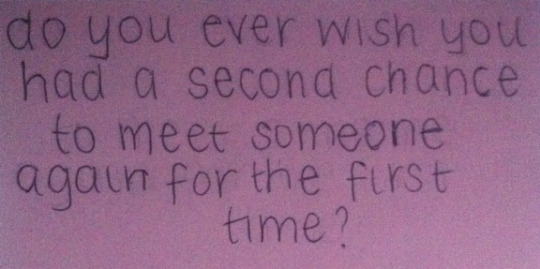 do you ever wish you
had a second chance
to meet someone
again for the first
time?